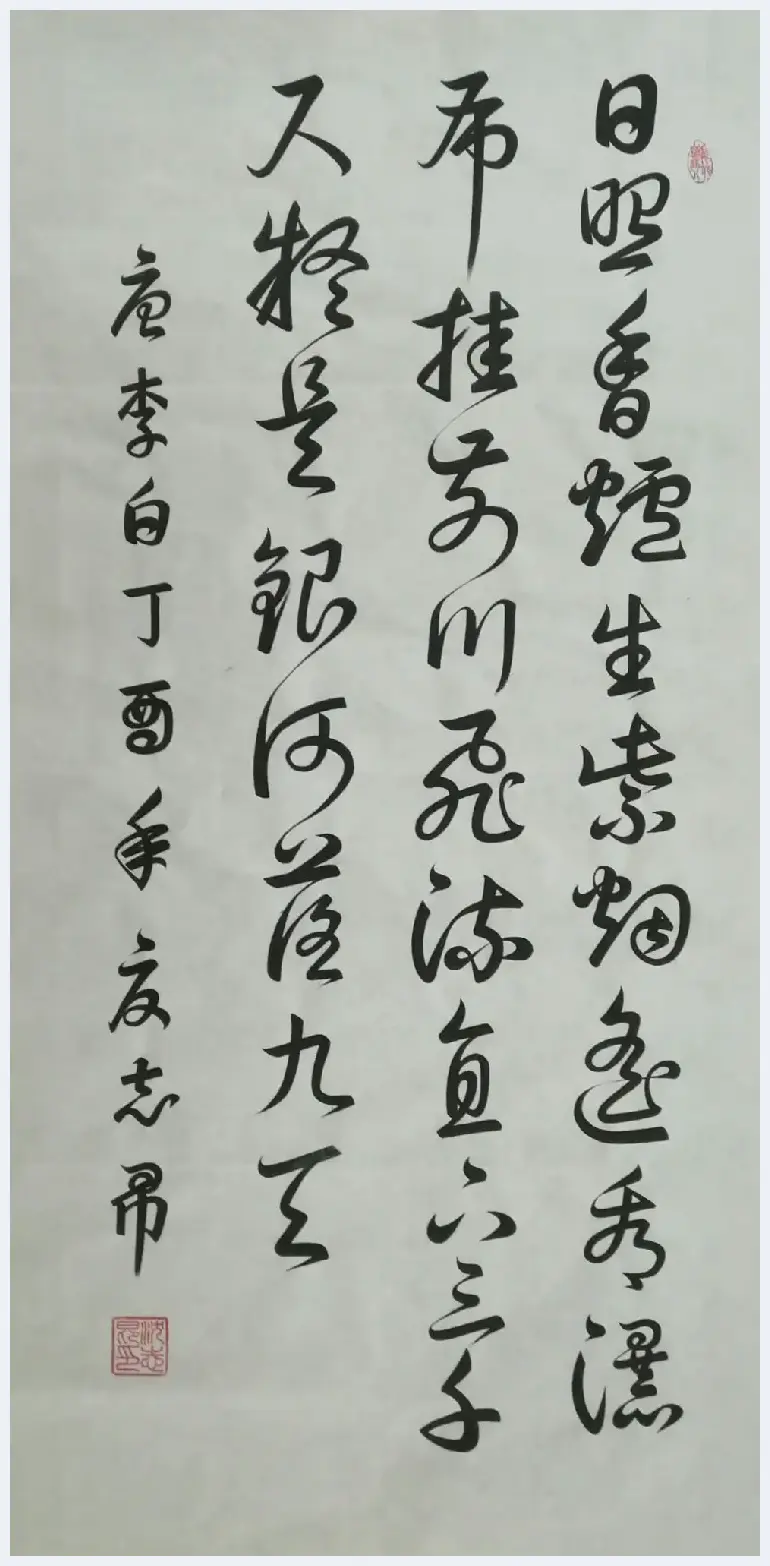 日照香爐生紫烟遙看瀑
布挂前川飛流直下三千
尺疑是銀河落九天
唐李白丁酉年夏志昂